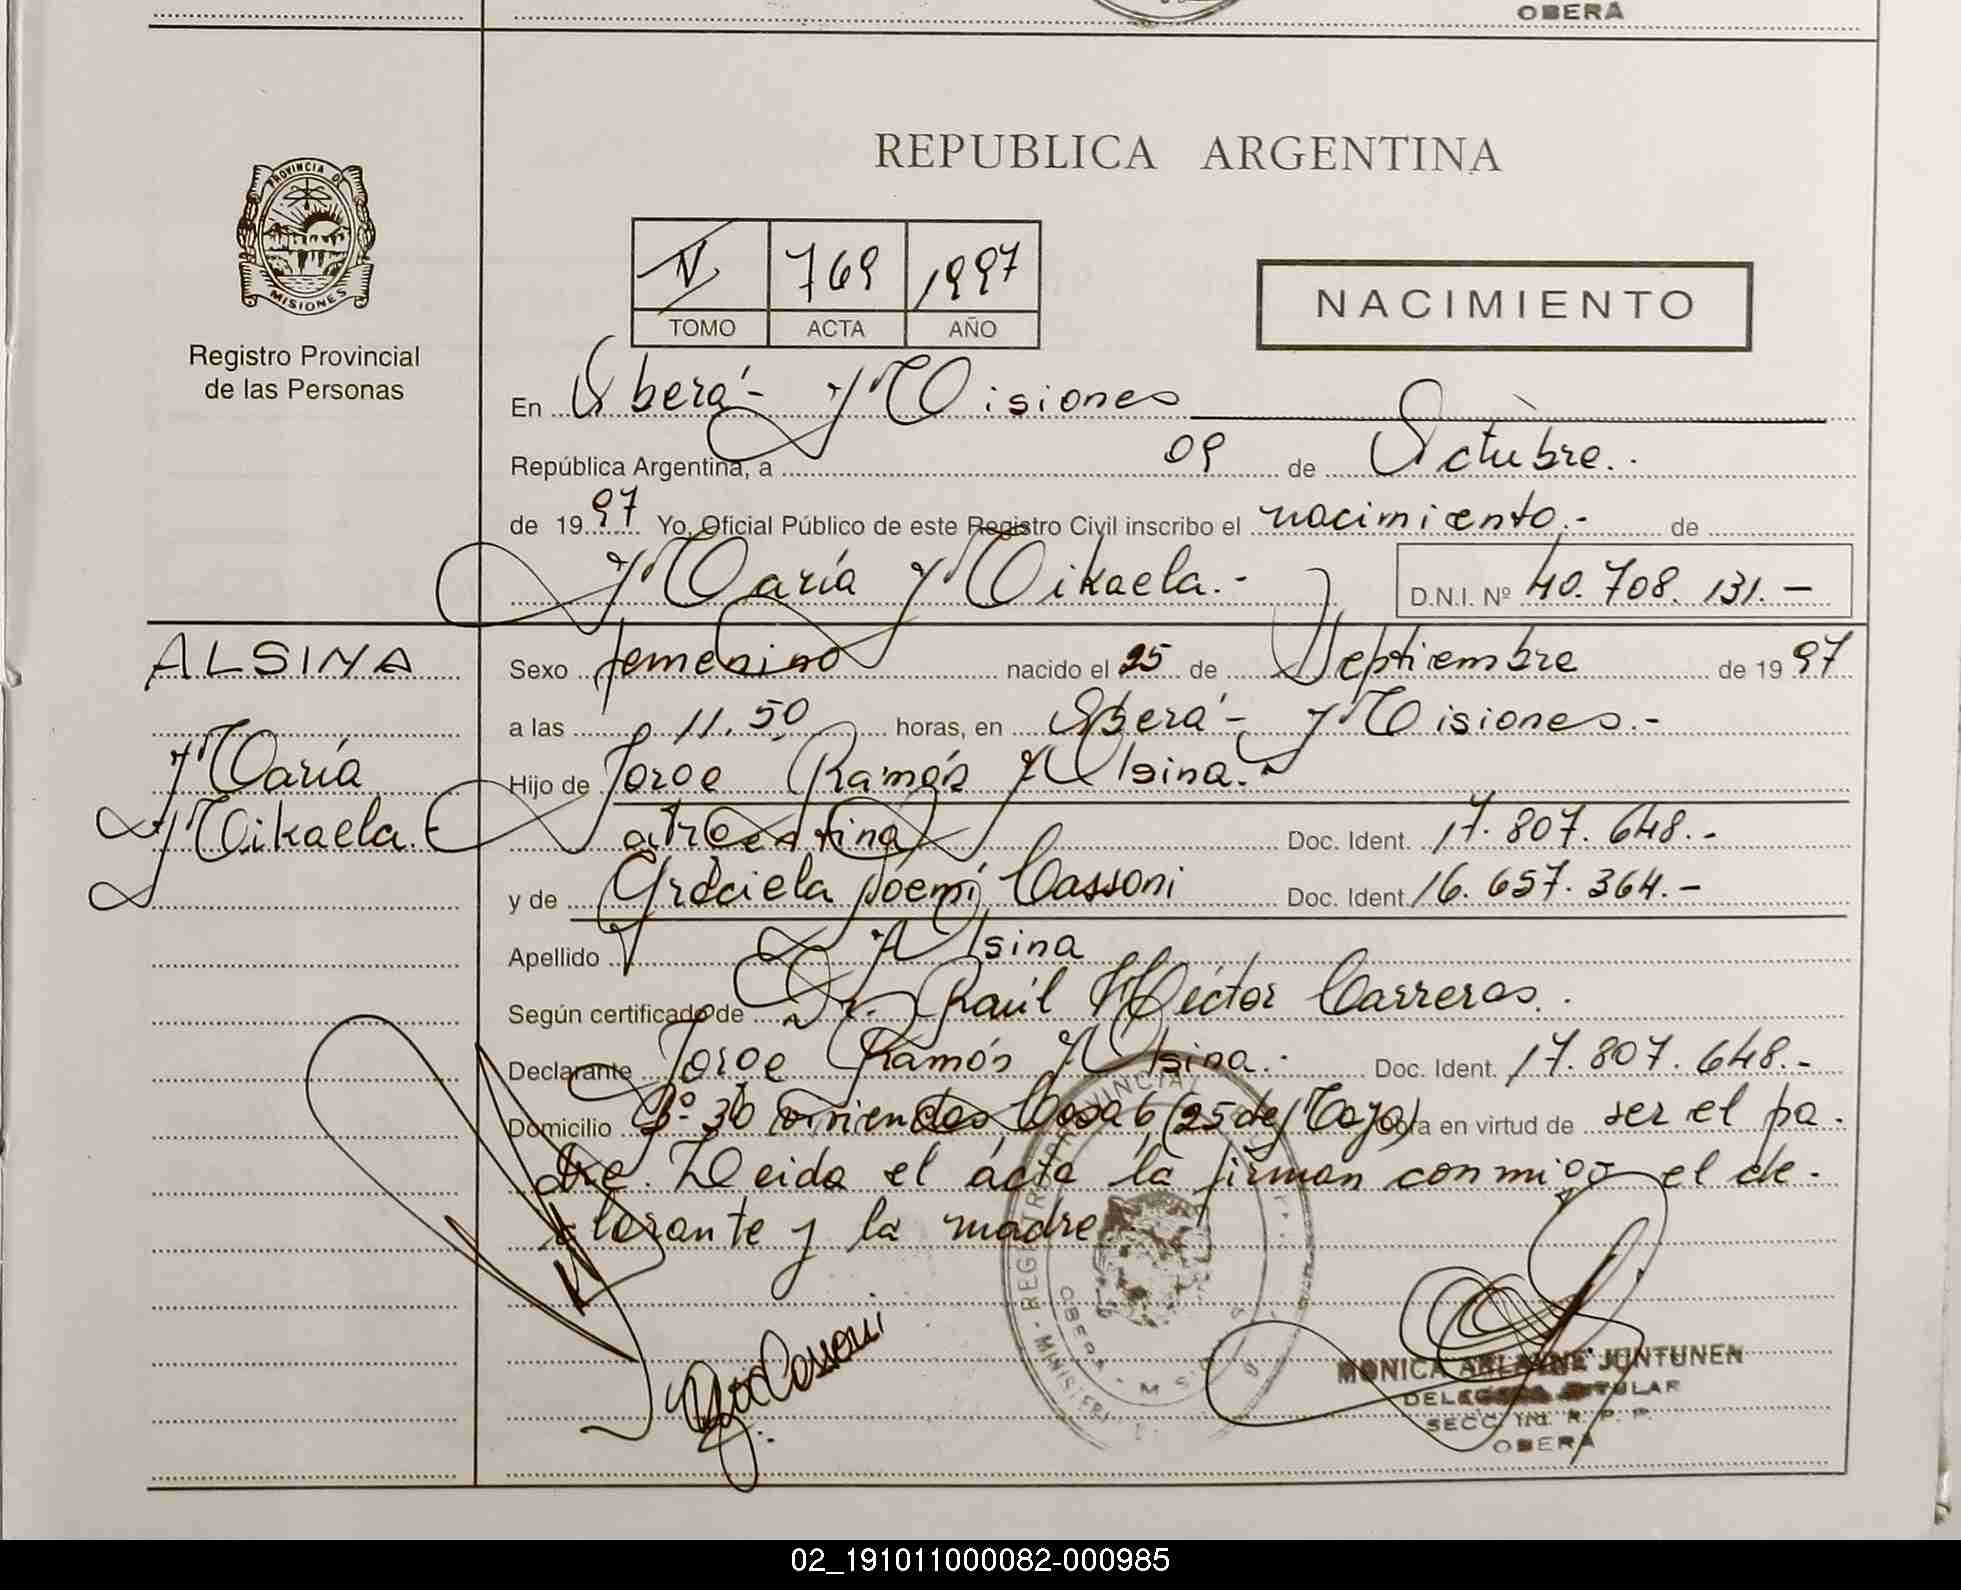 OBERA
PROVINCIA DE
MISIONES
Registro Provincial
de las Personas
REPUBLICA ARGENTINA
769 1997
TOMO ACTA AÑO
NACIMIENTO
En Oberá - Misiones
República Argentina, a 09 de Octubre.
de 1997 Yo, Oficial Público de este Registro Civil inscribo el nacimiento.- de
María Mikaela.- D.N.I. Nº 40.708.131.-
ALSINA
María
Mikaela.
Sexo femenino nacido el 25 de Septiembre de 1997
a las 11.50 horas, en Oberá - Misiones.-
Hijo de Jorge Ramón Alsina.-
argentina Doc. Ident. 17.807.648.-
y de Graciela Noemí Cassoni Doc. Ident. 16.657.364.-
Apellido Alsina
Según certificado de Dr. Raúl Héctor Carreras.
Declarante Jorge Ramón Alsina.- Doc. Ident. 17.807.648.-
Domicilio Bº 30 viviendas Casa 6 (25 de Mayo) Obra en virtud de ser el pa-
dre. Leida el acta la firman conmigo el de-
clarante y la madre.
MONICA ARLAYNE JUNTUNEN
DELEGADA TITULAR
SECC. R. P. P.
OBERA
02_191011000082-000985